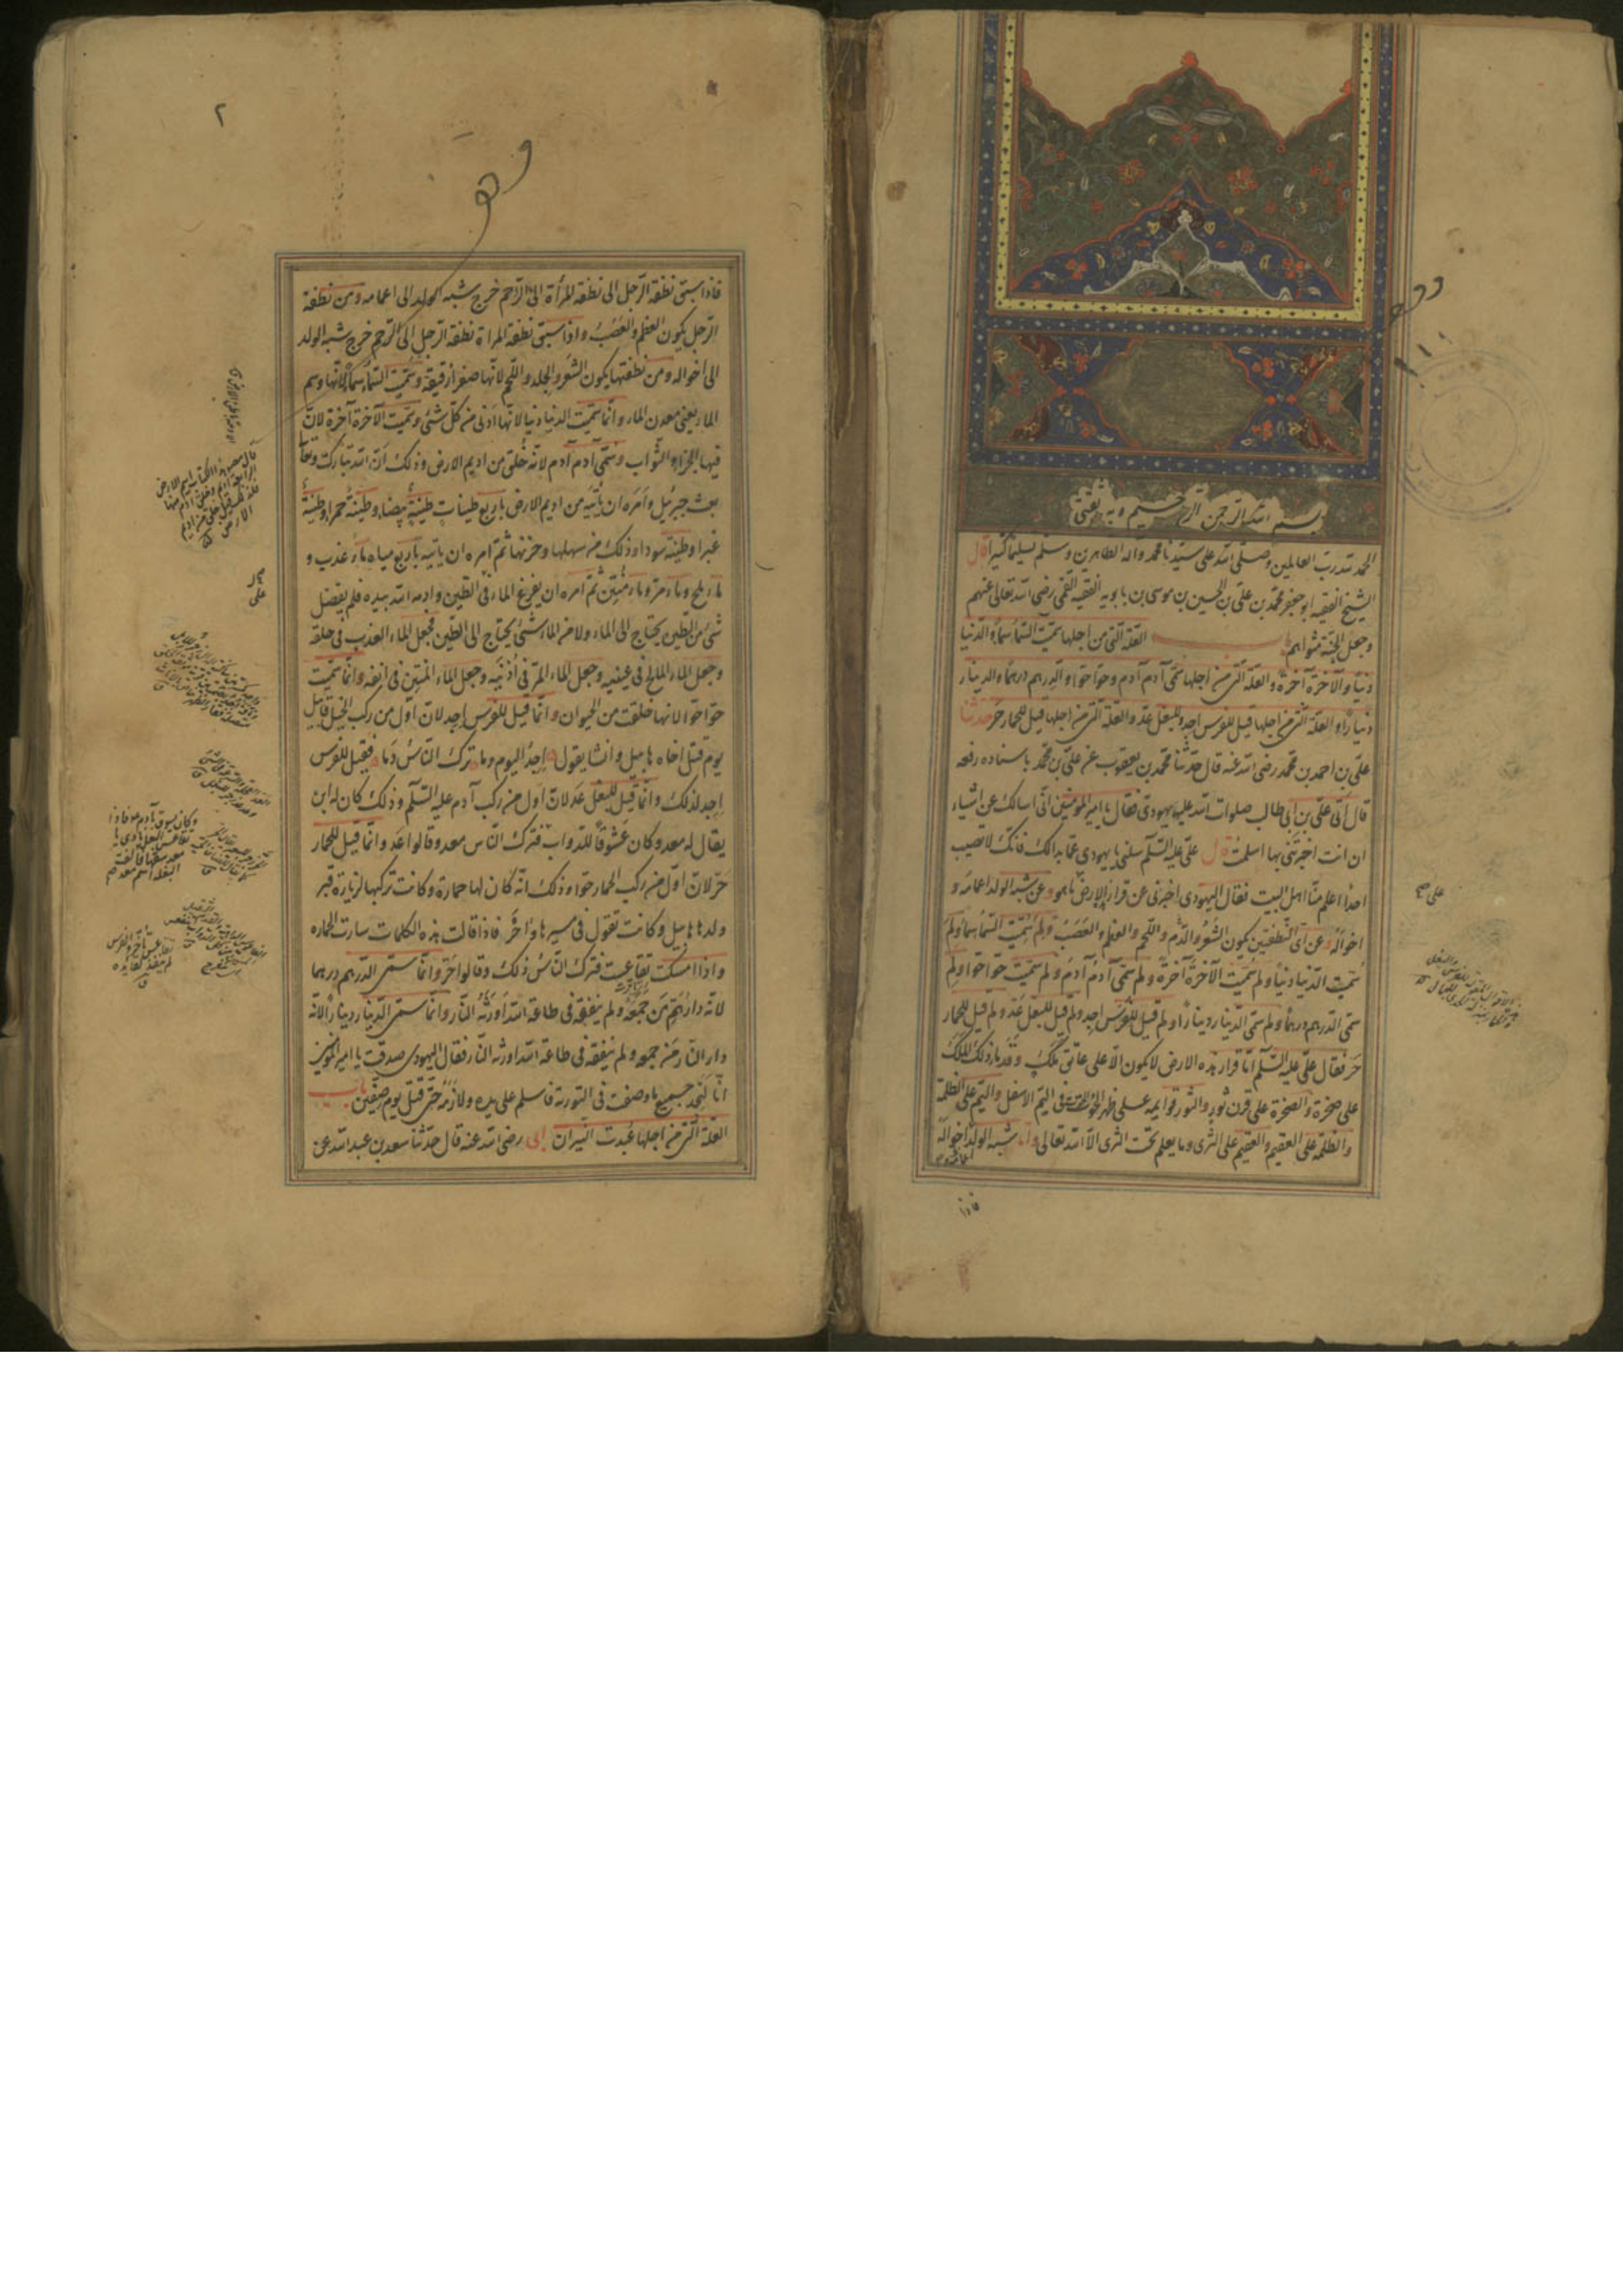 بسم الله الرحمن الرحيم وبه ثقتى
الحمد لله رب العالمين وصلى الله على سيدنا محمد وآله الطاهرين وسلم تسليما كثيرا قال
الشيخ الفقيه ابو جعفر محمد بن على بن الحسين بن موسى بن بابويه الفقيه القمى رضى الله تعالى عنهم
وجعل الجنة مثواهم باب العلة التى من اجلها سميت السماء سماء والدنيا
دنيا والآخرة آخرة والعلة التى من اجلها سمى آدم آدم وحوا حوا والدرهم درهما والدينار
دينارا والعلة التى من اجلها قيل للفرس اجد وللبغل عد والعلة التى من اجلها قيل للحمار حر حدثنا
على بن احمد بن محمد رضى الله عنه قال حدثنا محمد بن يعقوب عن على بن محمد باسناده رفعه
قال اتى على بن ابى طالب صلوات الله عليه يهودى فقال يا امير المومنين انى اسالك عن اشياء
ان انت اخبرتنى بها اسلمت قال على عليه السلم سلنى يا يهودى عما بدا لك فانك لا تصيب
احدا اعلم منا اهل البيت فقال اليهودى اخبرنى عن قرار الارض ما هو وعن شبه الولد اعمامه و
اخواله وعن اى النطفتين يكون الشعر والدم واللحم والعظم والعصب ولم سميت السماء سماء ولم
سميت الدنيا دنيا ولم سميت الآخرة آخرة ولم سمى آدم آدم ولم سميت حوا حوا ولم
سمى الدرهم درهما ولم سمى الدينار دينارا ولم قيل للفرس اجد ولم قيل للبغل عد ولم قيل للحمار
حر فقال على عليه السلم اما قرار هذه الارض لا يكون الا على عاتق ملك وقدما ذلك الملك
على صخرة والصخرة على قرن ثور والثور قوايمه على ظهر الحوت فى اليم الاسفل واليم على الظلمة
والظلمة على العقيم والعقيم على الثرى وما يعلم تحت الثرى الا الله تعالى واما شبه الولد اخواله
فاذا
٢
وقف
فاذا سبق نطفة الرجل الى نطفة المرأة الى الرحم خرج شبه الولد الى اعمامه ومن نطفة
الرجل يكون العظم والعصب واذا سبق نطفة المراة نطفة الرجل الى الرحم خرج شبه الولد
الى اخواله ومن نطفتها يكون الشعر والجلد واللحم لانها صفرا رقيقة وسميت السماء سماء لانها وسم
الماء يعنى معدن الماء وانما سميت الدنيا دنيا لانها ادنى من كل شئ وسميت الآخرة آخرة لان
فيها الجزاء والثواب وسمى آدم آدم لانه خلق من اديم الارض وذلك ان الله تبارك وتعالى
بعث جبرئيل وامره ان ياتيه من اديم الارض باربع طينات طينة بيضاء وطينة حمراء وطينة
غبرا وطينة سوداء وذلك من سهلها وحزنها ثم امره ان ياتيه باربع مياه ماء عذب و
ماء ملح وماء مر وماء منتن ثم امره ان يفرغ الماء فى الطين وادمه الله بيده فلم يفضل
شئ من الطين يحتاج الى الماء ولا من الماء شئ يحتاج الى الطين فجعل الماء العذب فى حلقه
وجعل الماء المالح فى عينيه وجعل الماء المر فى اذنيه وجعل الماء المنتن فى انفه وانما سميت
حوا حوا لانها خلقت من الحيوان وانما قيل للفرس اجد لان اول من ركب الخيل قابيل
يوم قتل اخاه هابيل وانشا يقول اجد اليوم وما ترك الناس دما فقيل للفرس
اجد لذلك وانما قيل للبغل عد لان اول من ركب آدم عليه السلم وذلك كان له ابن
يقال له معد وكان عشوقا للدواب فترك الناس معد وقالوا عد وانما قيل للحمار
حر لان اول من ركب الحمار حوا وذلك انه كان لها حمارة وكانت تركبها لزيارة قبر
ولدها هابيل وكانت تقول فى مسيرها واحر فاذا قالت هذه الكلمات سارت الحماره
واذا امسكت تقاعست فترك الناس ذلك وقالوا حر وانما سمى الدرهم درهما
لانه دار هم من جمعه ولم ينفقه فى طاعة الله اورثه النار وانما سمى الدينار دينارا لانه
دار النار من جمعه ولم ينفقه فى طاعة الله اورثه النار فقال اليهودى صدقت يا امير المومنين
انا لنجد جميع ما وصفت فى التورية فاسلم على يده ولازمه حتى قتل يوم صفين باب
العلة التى من اجلها عبدت النيران ابى رضى الله عنه قال حدثنا سعد بن عبد الله عن